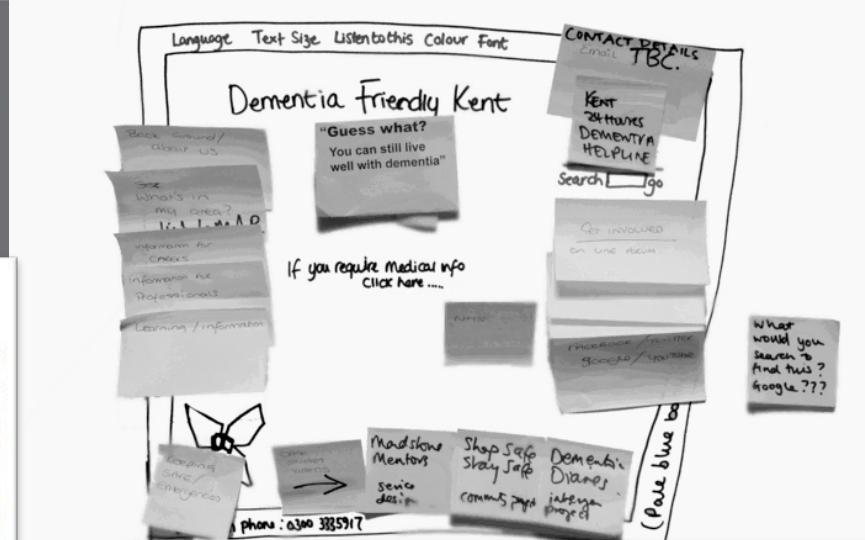 Language Text Size Listen to this Colour Font
CONTACT DETAILS
Email TBC.
Dementia Friendly Kent
KENT
24 Hours
DEMENTIA
HELPLINE
"Guess what?
You can still live
well with dementia"
Search go
Back Ground/
about us
See
What's in
my area?
Information for
Carers
Information for
Professionals
Learning / information
If you require Medical info
Click here ....
GET INVOLVED
on line forum
NHS
FACEBOOK / TWITTER
google / youtube
What
would you
search to
find this?
Google ???
Keeping
Safe /
Emergencies
Maidstone
Mentors
service
design
Shop Safe
Stay Safe
Dementia
Diaries
intergen
project
phone: 0300 3335917
(Pale blue